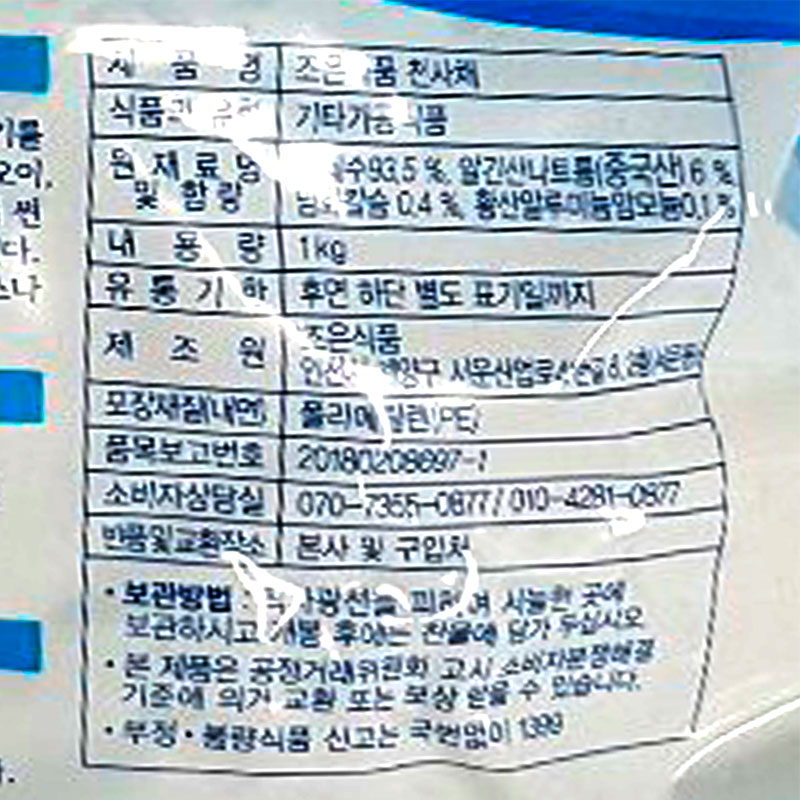 기를
오이,
썬
다.
소나
제 품 명 조은 품 천사채
식품의 유형 기타가공식품
원 재 료 명 수93.5 %, 알긴산나트륨(중국산) 6 %,
및 함 량 염화칼슘 0.4 %, 황산알루미늄암모늄0.1 %
내 용 량 1kg
유 통 기 한 후면 하단 별도 표기일까지
제 조 원 조은식품
계양구 서운산업로
포장재질(내면) 폴리에틸렌(PE)
품목보고번호
소비자상담실 070-7355-0877 / 010-4281-0877
반품및교환장소 본사 및 구입처
• 보관방법 : 직사광선을 피하여 서늘한 곳에
보관하시고 개봉 후에는 찬물에 담가 두십시오.
• 본 제품은 공정거래위원회 고시 소비자분쟁해결
기준에 의거 교환 또는 보상 받을 수 있습니다.
• 부정 • 불량식품 신고는 국번없이 1399